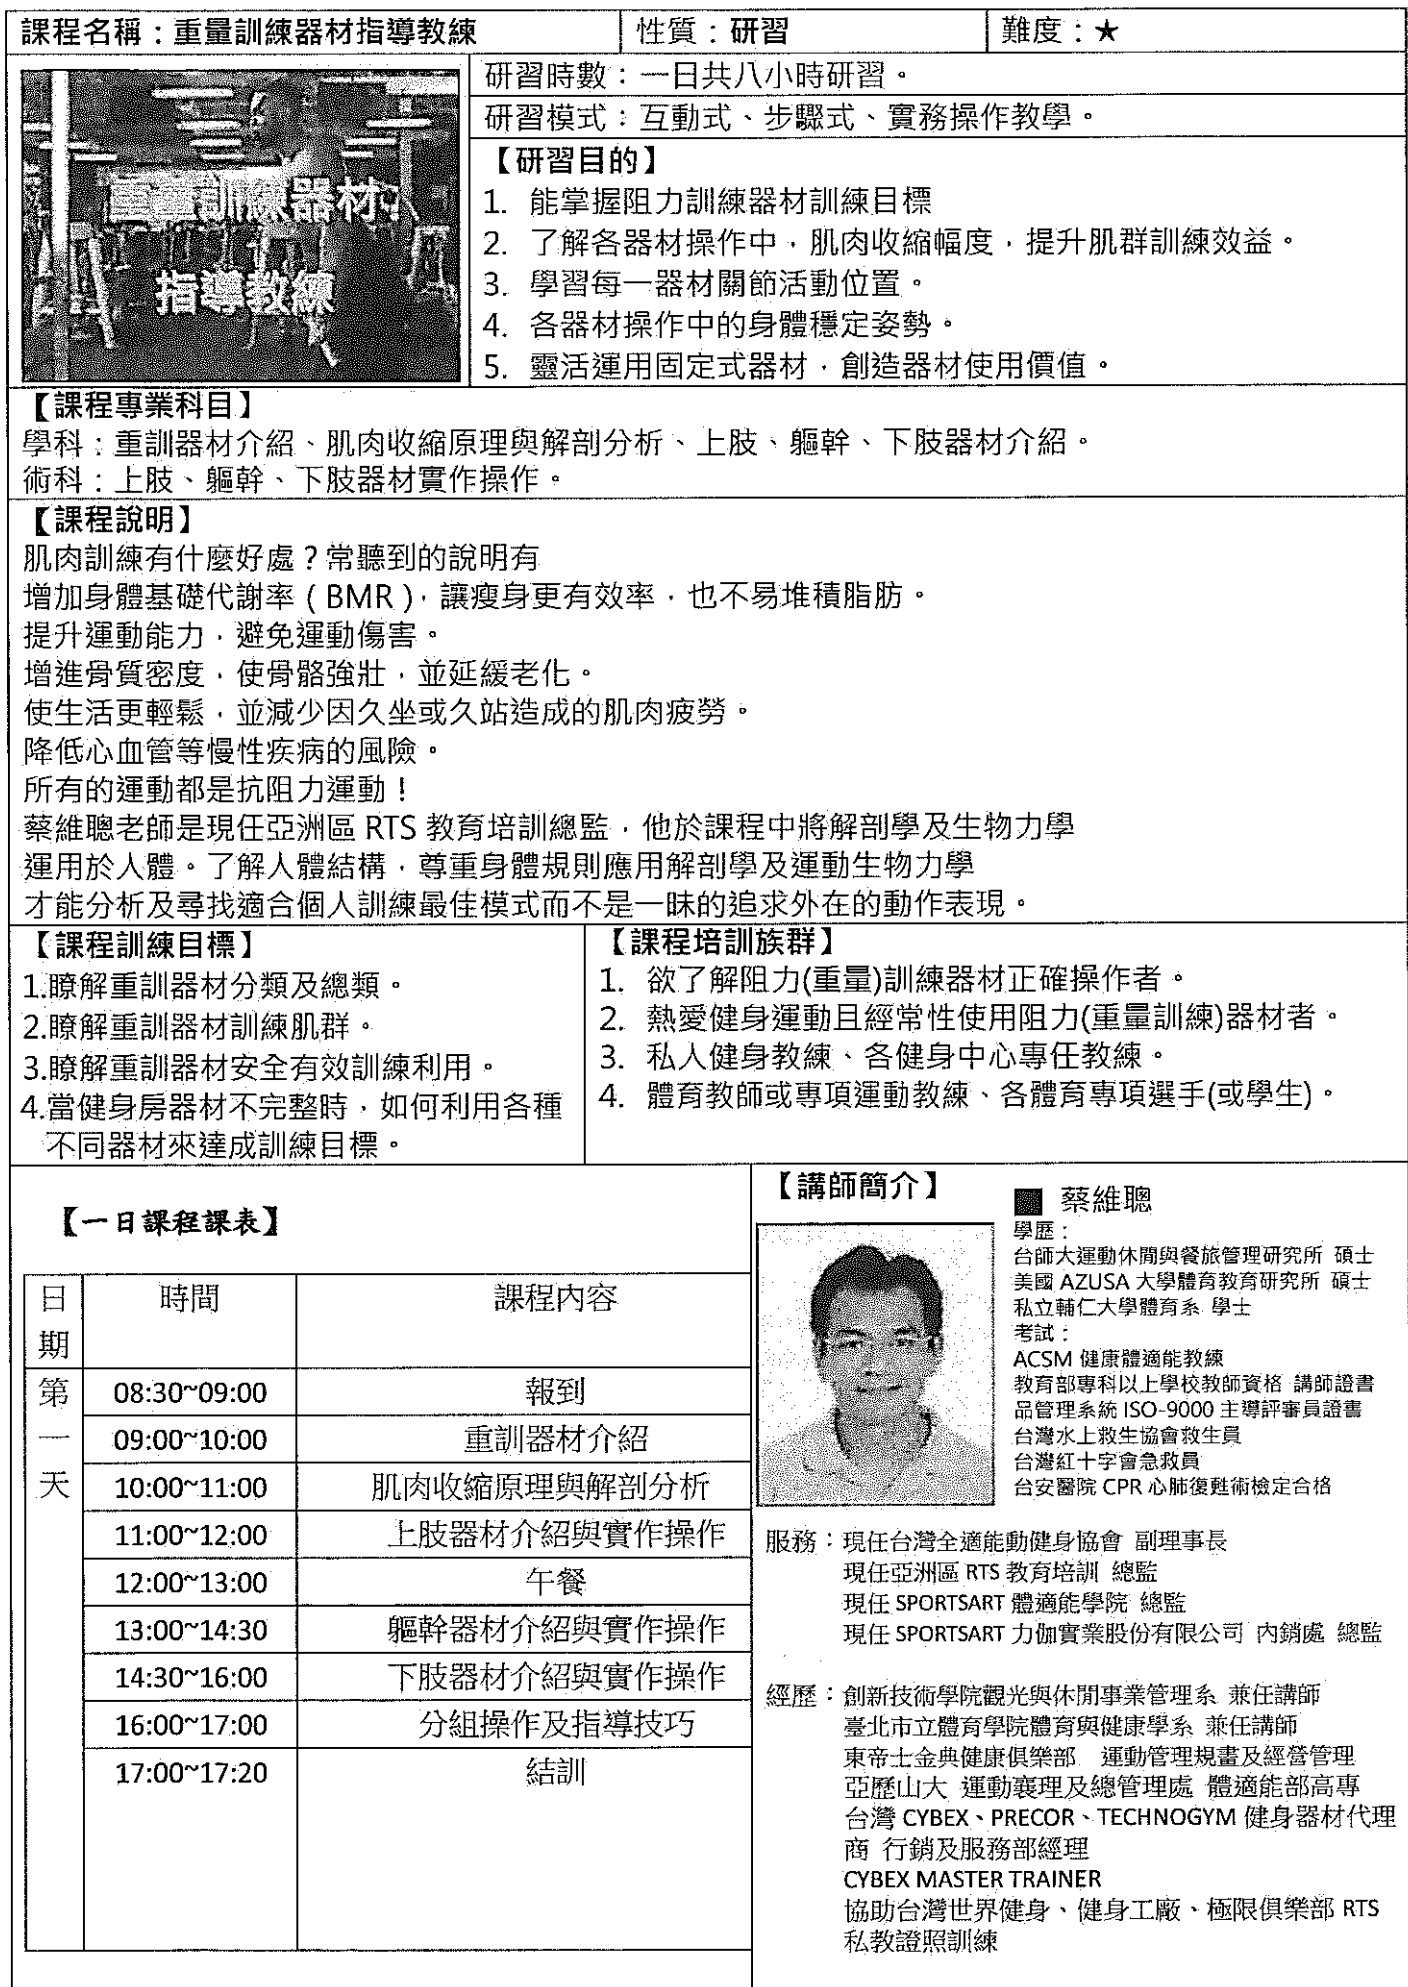 課程名稱：重量訓練器材指導教練
性質：研習
難度：★
重量訓練器材
指導教練
研習時數：一日共八小時研習。
研習模式：互動式、步驟式、實務操作教學。
【研習目的】
1. 能掌握阻力訓練器材訓練目標
2. 了解各器材操作中，肌肉收縮幅度，提升肌群訓練效益。
3. 學習每一器材關節活動位置。
4. 各器材操作中的身體穩定姿勢。
5. 靈活運用固定式器材，創造器材使用價值。
【課程專業科目】
學科：重訓器材介紹、肌肉收縮原理與解剖分析、上肢、軀幹、下肢器材介紹。
術科：上肢、軀幹、下肢器材實作操作。
【課程說明】
肌肉訓練有什麼好處？常聽到的說明有
增加身體基礎代謝率（BMR），讓瘦身更有效率，也不易堆積脂肪。
提升運動能力，避免運動傷害。
增進骨質密度，使骨骼強壯，並延緩老化。
使生活更輕鬆，並減少因久坐或久站造成的肌肉疲勞。
降低心血管等慢性疾病的風險。
所有的運動都是抗阻力運動！
蔡維聰老師是現任亞洲區 RTS 教育培訓總監，他於課程中將解剖學及生物力學
運用於人體。了解人體結構，尊重身體規則應用解剖學及運動生物力學
才能分析及尋找適合個人訓練最佳模式而不是一昧的追求外在的動作表現。
【課程訓練目標】
1.瞭解重訓器材分類及總類。
2.瞭解重訓器材訓練肌群。
3.瞭解重訓器材安全有效訓練利用。
4.當健身房器材不完整時，如何利用各種
不同器材來達成訓練目標。
【課程培訓族群】
1. 欲了解阻力(重量)訓練器材正確操作者。
2. 熱愛健身運動且經常性使用阻力(重量訓練)器材者。
3. 私人健身教練、各健身中心專任教練。
4. 體育教師或專項運動教練、各體育專項選手(或學生)。
【一日課程課表】
日期 時間 課程內容
第一天 08:30~09:00 報到
09:00~10:00 重訓器材介紹
10:00~11:00 肌肉收縮原理與解剖分析
11:00~12:00 上肢器材介紹與實作操作
12:00~13:00 午餐
13:00~14:30 軀幹器材介紹與實作操作
14:30~16:00 下肢器材介紹與實作操作
16:00~17:00 分組操作及指導技巧
17:00~17:20 結訓
【講師簡介】
■ 蔡維聰
學歷：
台師大運動休閒與餐旅管理研究所 碩士
美國 AZUSA 大學體育教育研究所 碩士
私立輔仁大學體育系 學士
考試：
ACSM 健康體適能教練
教育部專科以上學校教師資格 講師證書
品管理系統 ISO-9000 主導評審員證書
台灣水上救生協會救生員
台灣紅十字會急救員
台安醫院 CPR 心肺復甦術檢定合格
服務：現任台灣全適能動健身協會 副理事長
現任亞洲區 RTS 教育培訓 總監
現任 SPORTSART 體適能學院 總監
現任 SPORTSART 力伽實業股份有限公司 內銷處 總監
經歷：創新技術學院觀光與休閒事業管理系 兼任講師
臺北市立體育學院體育與健康學系 兼任講師
東帝士金典健康俱樂部 運動管理規畫及經營管理
亞歷山大 運動襄理及總管理處 體適能部高專
台灣 CYBEX、PRECOR、TECHNOGYM 健身器材代理
商 行銷及服務部經理
CYBEX MASTER TRAINER
協助台灣世界健身、健身工廠、極限俱樂部 RTS
私教證照訓練